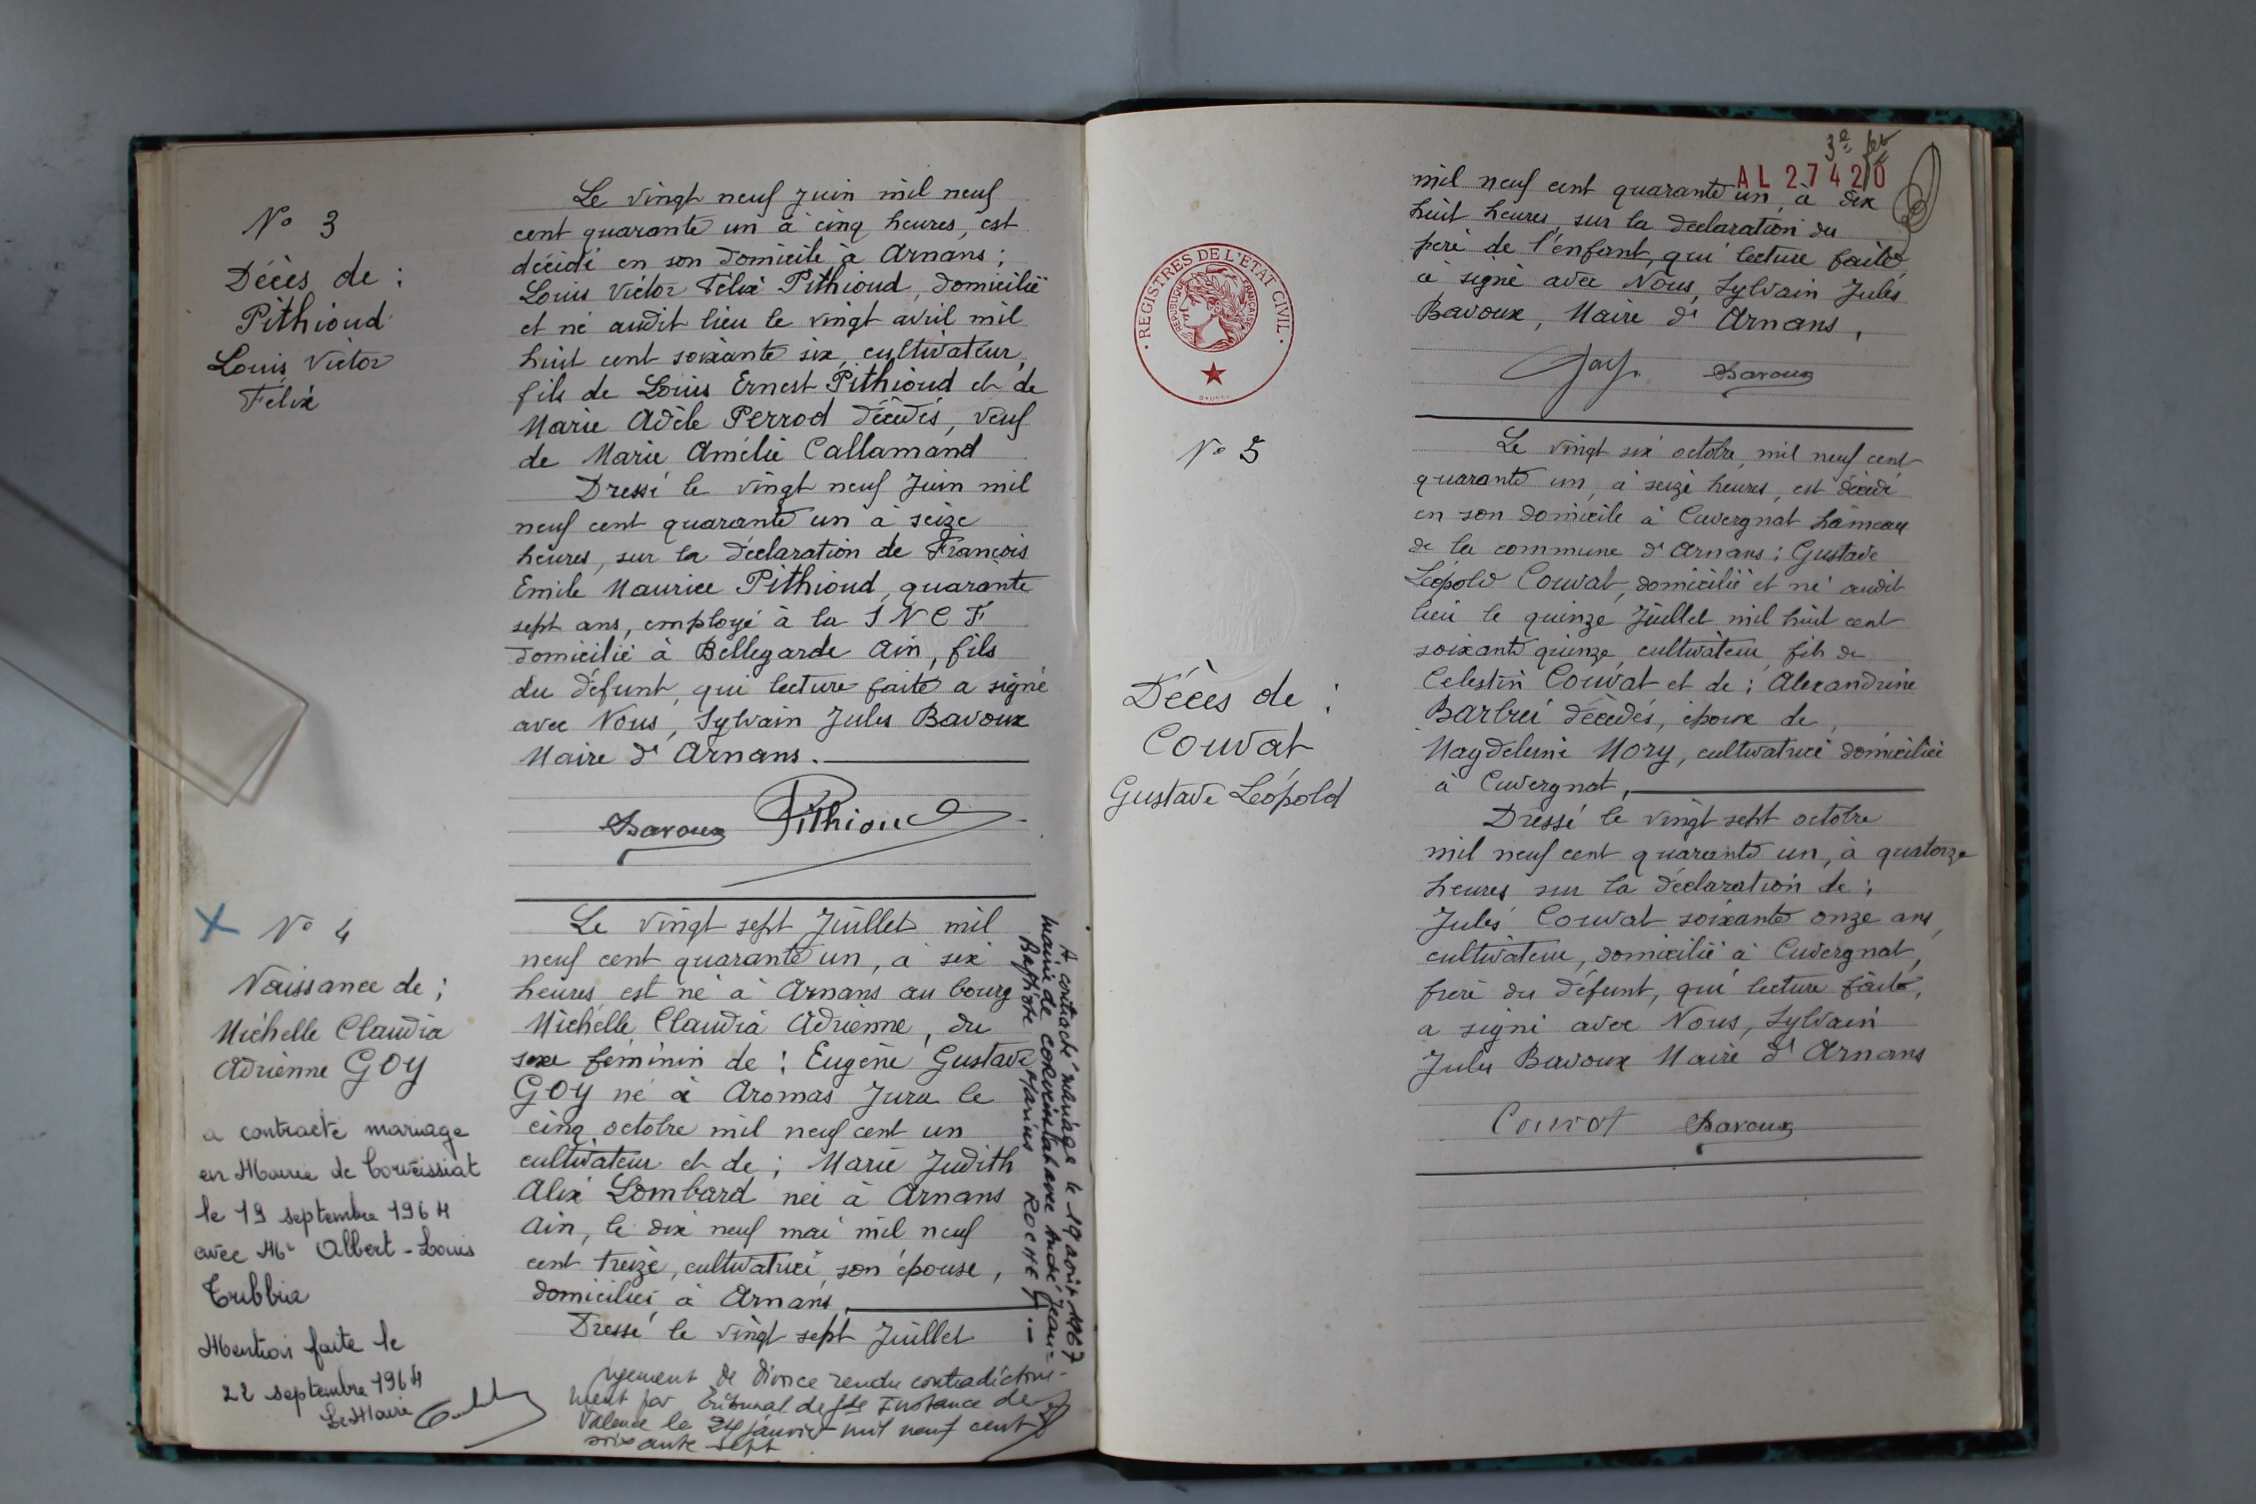 N° 3
Décès de :
Pithioud
Louis Victor
Félix
Le vingt neuf Juin mil neuf
cent quarante un à cinq heures, est
décédé en son domicile à Arnans ;
Louis Victor Félix Pithioud, domicilié
et né audit lieu le vingt avril mil
huit cent soixante six, cultivateur,
fils de Louis Ernest Pithioud et de
Marie Adèle Perrod décédés, veuf
de Marie Amélie Callamand
Dressé le vingt neuf Juin mil
neuf cent quarante un à seize
heures, sur la déclaration de François
Emile Maurice Pithioud, quarante
sept ans, employé à la S N C F
domicilié à Bellegarde Ain, fils
du défunt, qui lecture faite a signé
avec Nous, Sylvain Jules Bavoux
Maire d' Arnans.
Bavoux Pithioud
N° 4
Naissance de ;
Michelle Claudia
Adrienne GOY
a contracté mariage
en Mairie de Corveissiat
le 19 septembre 1964
avec Mr Albert-Louis
Tribbia
Mention faite le
22 septembre 1964
Le Maire
Le vingt sept Juillet mil
neuf cent quarante un, à six
heures est né à Arnans au bourg
Michelle Claudia Adrienne, du
sexe féminin de : Eugène Gustave
GOY né à Aromas Jura le
cinq octobre mil neuf cent un
cultivateur et de ; Marie Judith
Alix Lombard née à Arnans
Ain, le dix neuf mai mil neuf
cent treize, cultivatrice, son épouse,
domiciliés à Arnans,
Dressé le vingt sept Juillet
A contracté mariage le 19 août 1967
mairie de CORVEISSIAT avec André Jean-
Baptiste Marius ROCHE
Jugement de divorce rendu contradictoire-
ment par Tribunal de Gde Instance de
Valence le 24 janvier mil neuf cent
soixante-sept
3e
AL 27420
mil neuf cent quarante un, à dix
huit heures, sur la déclaration du
père de l'enfant, qui lecture faite,
a signé avec Nous, Sylvain Jules
Bavoux, Maire d' Arnans,
Goy Bavoux
· REGISTRES DE L'ETAT CIVIL ·
REPUBLIQUE FRANÇAISE
N° 5
Décès de :
Couvat
Gustave Léopold
Le vingt six octobre, mil neuf cent
quarante un, à seize heures, est décédé
en son domicile à Cuvergnat hameau
de la commune d' Arnans : Gustave
Léopold Couvat, domicilié et né audit
lieu le quinze Juillet mil huit cent
soixante quinze, cultivateur, fils de
Celestin Couvat et de ; Alexandrine
Barbei décédés, époux de,
Magdeleine Mory, cultivatrice domiciliée
à Cuvergnat,
Dressé le vingt sept octobre
mil neuf cent quarante un, à quatorze
heures sur la déclaration de ;
Jules Couvat soixante onze ans,
cultivateur, domicilié à Cuvergnat,
frère du défunt, qui lecture faite,
a signé avec Nous, Sylvain
Jules Bavoux Maire d' Arnans
Couvat Bavoux